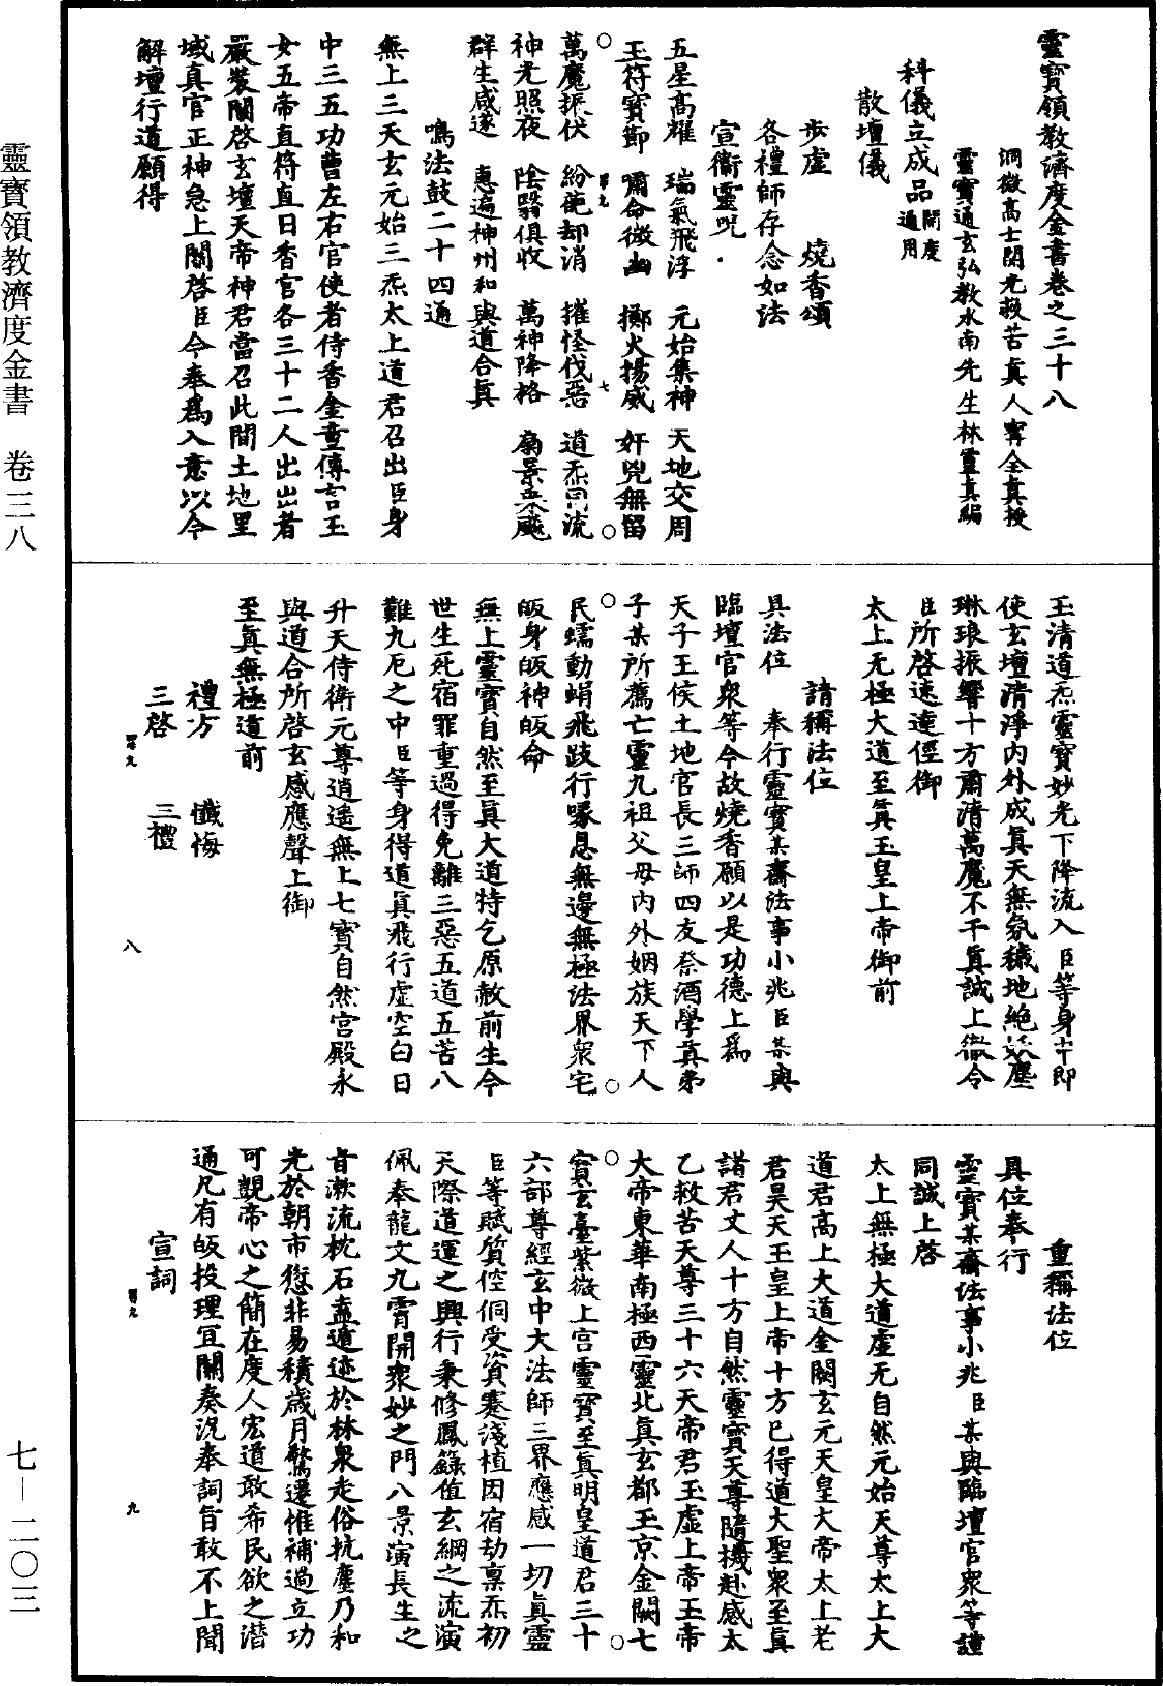 靈寶領教濟度金書卷之三十八
洞微高士開光救苦眞人寗全真授
靈寶通玄弘教水南先生林靈真編
科儀立成品開度通用
散壇儀
步虛　燒香頌
各禮師存念如法
宣衞靈呪
五星高耀　瑞氣飛浮　元始集神　天地交周
玉符寶節　嘯命微幽　擲火揚威　奸兇無留
萬魔振伏　紛葩却消　摧怪伐惡　道炁同流
神光照夜　陰翳俱收　萬神降格　扇景乘飈
群生咸遂　惠遍神州和與道合眞
鳴法鼓二十四通
無上三天玄元始三炁太上道君召出臣身
中三五功曹左右官使者侍香金童傳言玉
女五帝直符直日香官各三十二人出出者
嚴裝關啓玄壇天帝神君當召此間土地里
域真官正神急上關啓臣今奉爲入意以今
解壇行道願得
玉清道炁靈寶妙光下降流入臣等身中即
使玄壇清淨内外成眞天無氛穢地絶妖塵
琳琅振響十方肅清萬魔不干眞誠上徹令
臣所啓速達徑御
太上无極大道至眞玉皇上帝御前
請稱法位
具法位　奉行靈寶某齋法事小兆臣某與
臨壇官衆等今故燒香願以是功德上爲
天子王侯土地官長三師四友祭酒學眞弟
子某所薦亡靈九祖父母内外姻族天下人
民蠕動蜎飛跂行喙息無邊無極法界衆宅
皈身皈神皈命
無上靈寶自然至眞大道特乞原赦前生今
世生死宿罪重過得免離三惡五道五苦八
難九厄之中臣等身得道眞飛行虛空白日
升天侍衛元尊逍遥無上七寶自然宮殿永
與道合所啓玄感應聲上御
至眞無極道前
禮方　懺悔
三啓　三禮
重稱法位
具位奉行
靈寶某齋法事小兆臣某與臨壇官衆等謹
同誠上啓
太上無極大道虛无自然元始天尊太上大
道君高上大道金闕玄元天皇大帝太上老
君昊天玉皇上帝十方已得道大聖衆至眞
諸君丈人十方自然靈寶天尊隨機赴感太
乙救苦天尊三十六天帝君玉虛上帝玉帝
大帝東華南極西靈北眞玄都玉京金闕七
寶玄臺紫微上宫靈寶至眞明皇道君三十
六部尊經玄中大法師三界應感一切眞靈
臣等賦質倥侗受資蹇淺植因宿劫稟炁初
天際道運之興行秉修鳳籙值玄綱之流演
佩奉龍文九霄開衆妙之門八景演長生之
旨漱流枕石盍遁迹於林泉走俗抗塵乃和
光於朝市愆非易積歲月驚遷惟補過立功
可覬帝心之簡在度人宏道敢希民欲之潛
通凡有皈投理宜關奏況奉詞旨敢不上聞
宣詞
靈寶領教濟度金書　卷三八
七—二〇三